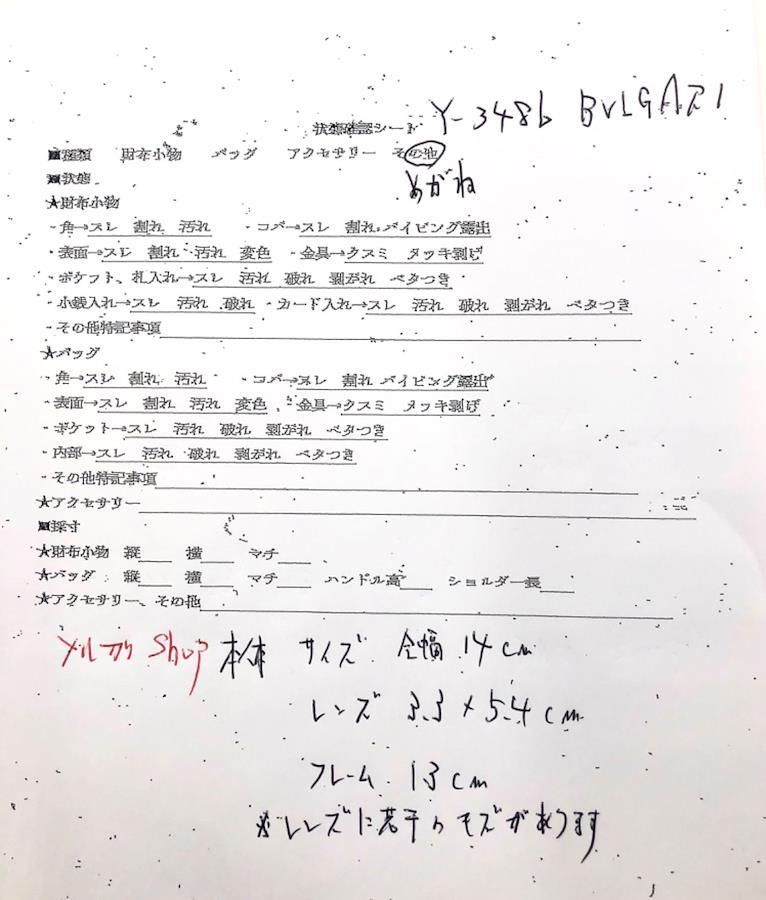 Y-3486 BVLGARI
状態確認シート
■種類 財布小物 バッグ アクセサリー その他
めがね
■状態
★財布小物
・角→スレ 割れ 汚れ ・コバ→スレ 割れ パイピング露出
・表面→スレ 割れ 汚れ 変色 ・金具→クスミ メッキ剥げ
・ポケット、札入れ→スレ 汚れ 破れ 剥がれ ベタつき
・小銭入れ→スレ 汚れ 破れ ・カード入れ→スレ 汚れ 破れ 剥がれ ベタつき
・その他特記事項
★バッグ
・角→スレ 割れ 汚れ ・コバ→スレ 割れ パイピング露出
・表面→スレ 割れ 汚れ 変色 ・金具→クスミ メッキ剥げ
・ポケット→スレ 汚れ 破れ 剥がれ ベタつき
・内部→スレ 汚れ 破れ 剥がれ ベタつき
・その他特記事項
★アクセサリー
■採寸
★財布小物 縦 横 マチ
★バッグ 縦 横 マチ ハンドル高 ショルダー長
★アクセサリー、その他
メルカリ Shop 本体 サイズ 全幅 14cm
レンズ 3.3×5.4cm
フレーム 13cm
※レンズに若干のキズがあります